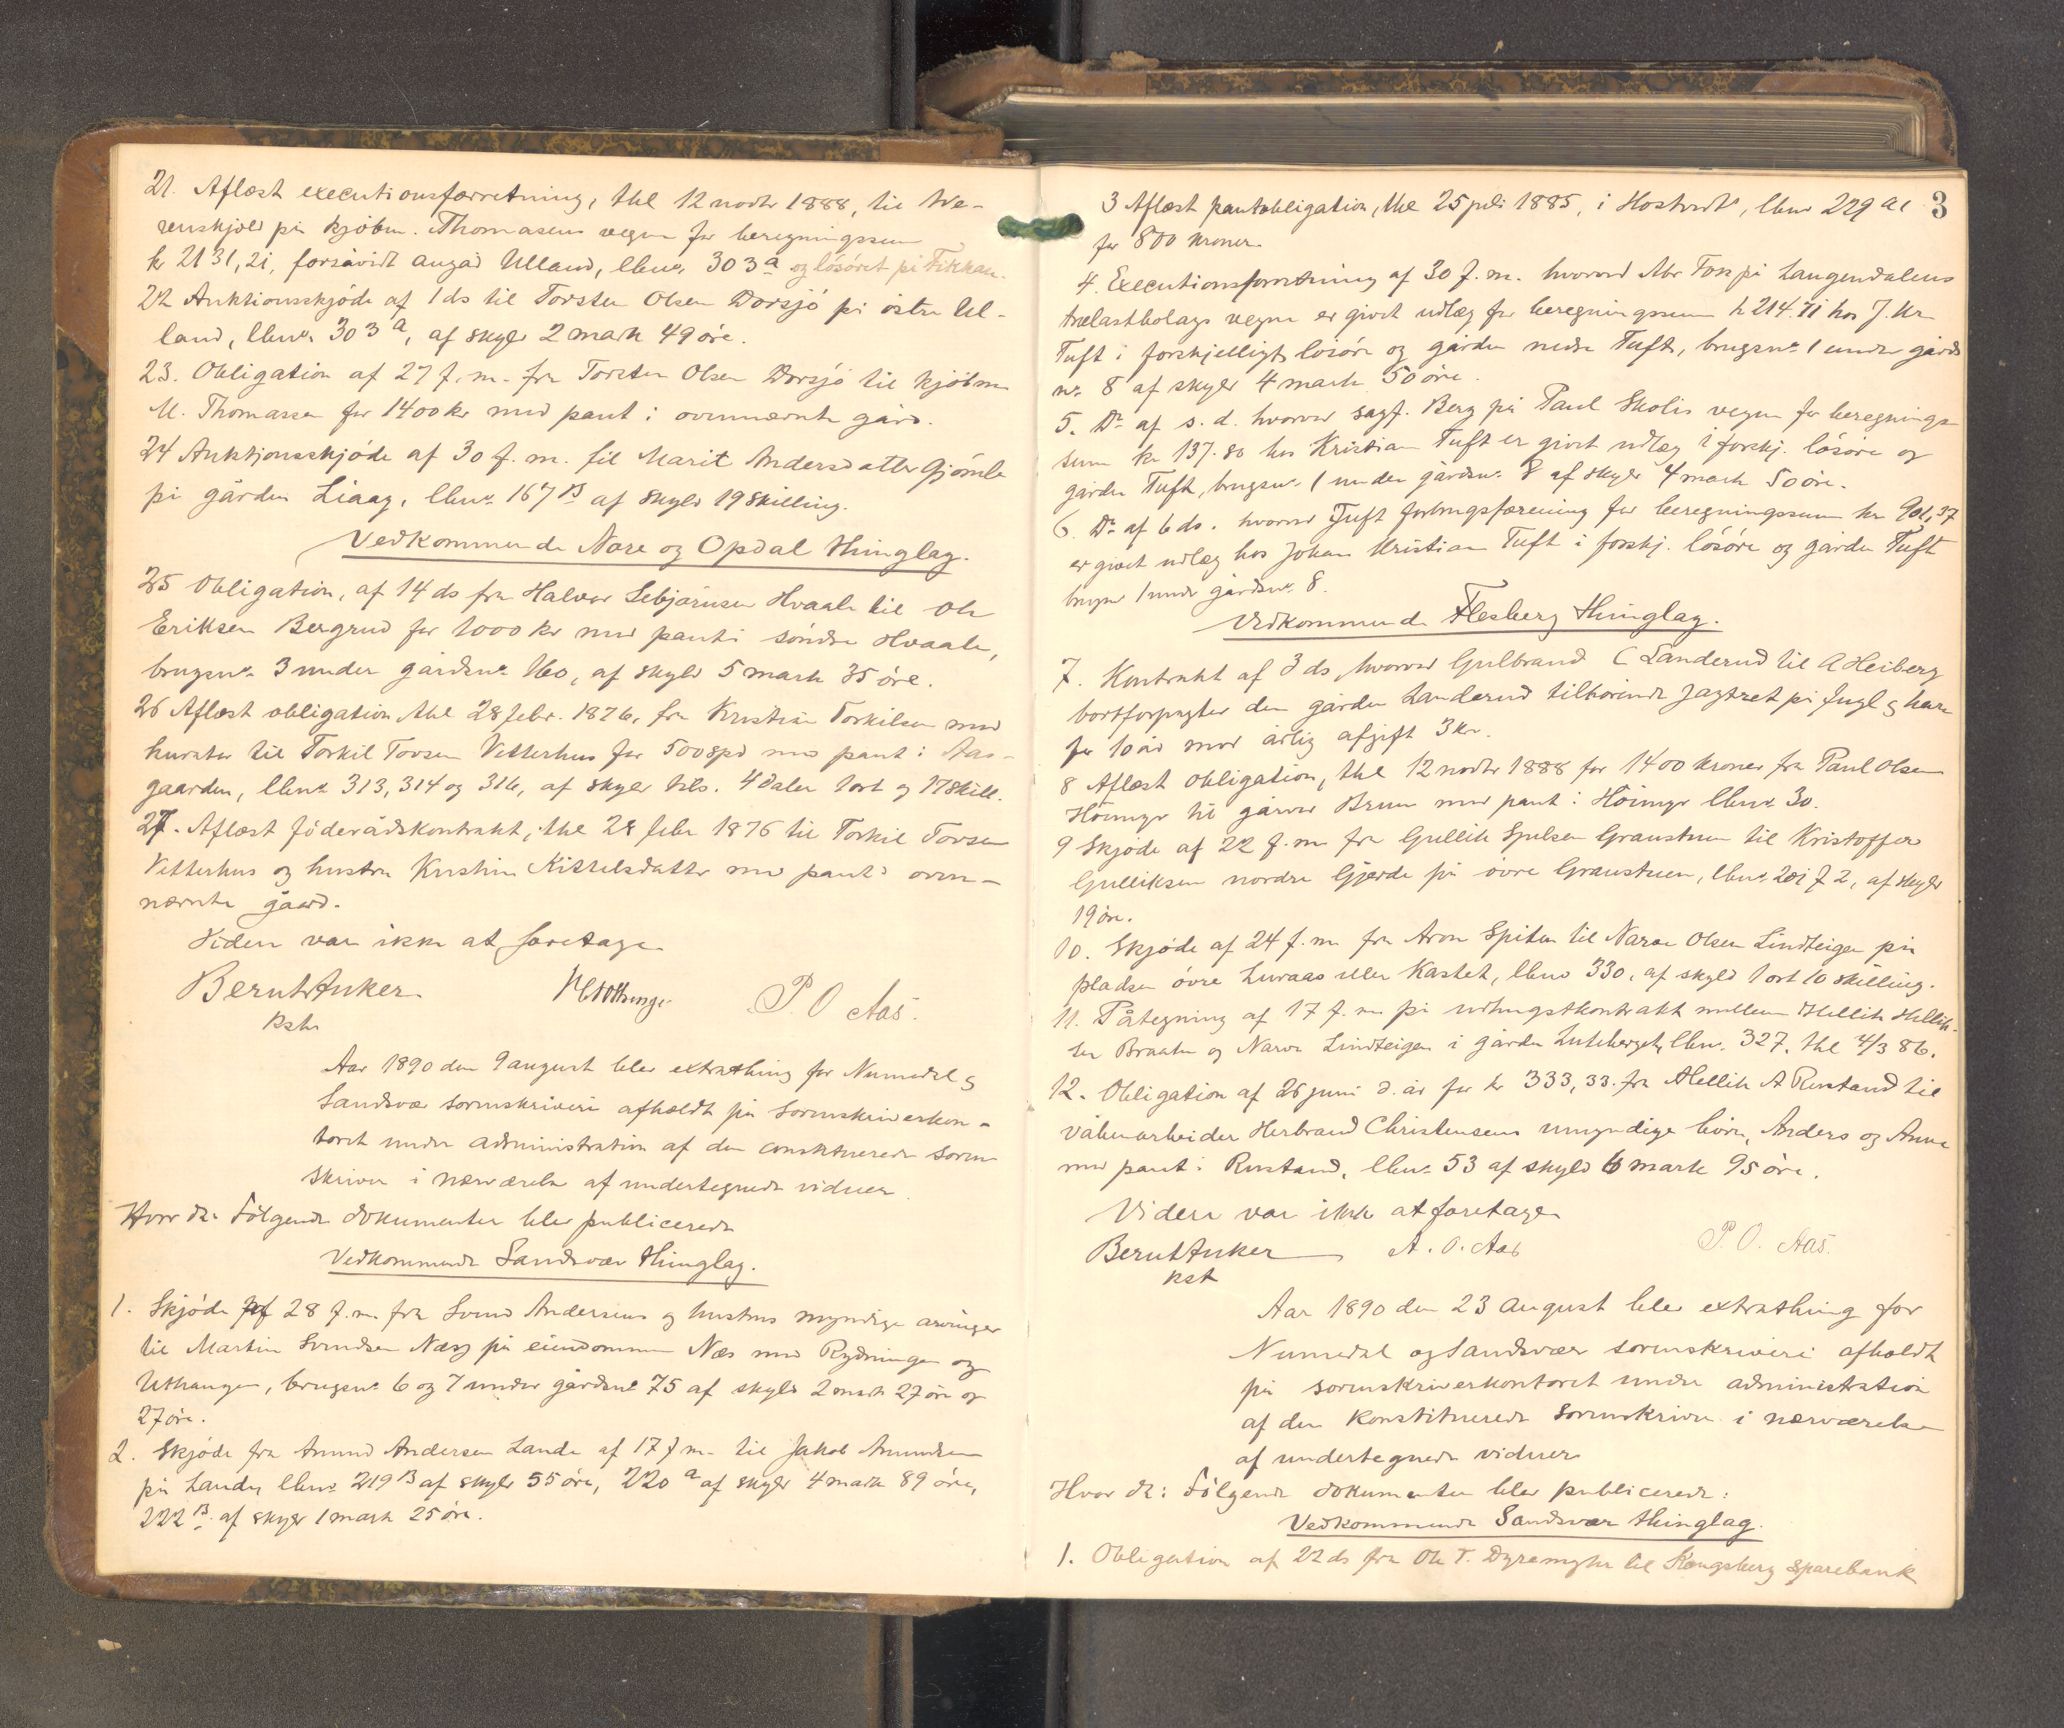 21. Aflæst executionsforretning, thl 12 novbr 1888, til Tve-
renskjold på kjøbm. Thomasens vegne for beregningssum
kr 2131,21, forsåvidt angår Ulland, lbnr. 303a og løsøret på Fikkan.
22 Auktionsskjøde af 1 ds til Torsten Olsen Dorsjø på østre Ul-
land, lbnr. 303a, af skyld 2 mark 49 øre.
23. Obligation af 27 f. m. fra Torsten Olsen Dorsjø til kjøbm
M. Thomassen for 1400 kr med pant i ovennævnte gård.
24 Auktjonsskjøde af 30 f. m. til Marit Andersdatter Gjømle
på gården Liaag, lbnr. 167B af skyld 19 skilling.
Vedkommende Nore og Opdal thinglag.
25 Obligation, af 14 ds fra Halvor Sebjørnsen Hvaale til Ole
Eriksen Bergrud for 1000 kr med pant i søndre Hvaale,
brugsnr. 3 under gårdsnr. 160, af skyld 5 mark 35 øre.
26 Aflæst obligation thl 28 febr. 1876, fra Kristian Torkilsen med
kurator til Torkil Tovsen Vetterhus for 500 spd med pant i Aas-
gaarden, lbnr. 313, 314 og 316, af skyld tils. 4 daler 1 ort og 17 skill.
27. Aflæst føderådskontrakt, thl 28 febr 1876 til Torkil Tovsen
Vetterhus og hustru Kirstine Kittelsdatter med pant i oven-
nævnte gaard.
Videre var ikke at foretage
Bernt Anker P. O. Aas.
kst.
Aar 1890 den 9 august blev extrathing for Numedal og
Sandsvær sorenskriveri afholdt på sorenskriverkon-
toret under administration af den constituerede soren-
skriver i nærværelse af undertegnede vidner.
Hvor da: Følgende dokumenter blev publicerede
Vedkommende Sandsvær thinglag.
1. Skjøde af 28 f. m. fra Svend Andersens og hustrus myndige arvinger
til Martin Svendsen Næs på eiendommen Næs med Rydningen og
Uthaugen, brugsnr. 6 og 7 under gårdsnr. 75 af skyld 2 mark 27 øre og
27 øre.
2. Skjøde fra Amund Andersen Lande af 17 f m. til Jakob Amundsen
på Lande, lbnr. 219B af skyld 55 øre, 220a af skyld 4 mark 89 øre,
222B. af skyld 1 mark 25 øre.
3
3 Aflæst pantobligation, thl 25 juli 1885, i Hostvedt, lbnr 229 ac
for 800 kroner.
4. Executionsforretning af 30 f. m. hvorved Mbr Fox på Langendalens
trælastbolags vegne er givet udlæg for beregningssum kr 214.71 hos J. Kr
Tuft i forskjelligt løsøre og gården nedre Tuft, brugsnr. 1 under gårds
nr. 8 af skyld 4 mark 50 øre.
5. Do af s. d. hvorved sagf. Berg på Paul Skolis vegne for beregnings-
sum kr 137.80 hos Kristian Tuft er givet udlæg i forskj. løsøre og
gården Tuft, brugsnr. 1 under gårdsnr. 8 af skyld 4 mark 50 øre.
6. Do af 6 ds. hvorved Tuft forbrugsforening for beregningssum kr 901,37
er givet udlæg hos Johan Kristian Tuft i forskj. løsøre og gården Tuft
brugsnr 1 under gårdsnr. 8.
Vedkommende Flesberg thinglag.
7. Kontrakt af 3 ds, hvorved Gulbrand C Landerud til A Heiberg
bortforpagter den gården Landerud tilhørende jagtret på fugl og hare
for 10 år mod årlig afgift 3 kr.
8 Aflæst obligation, thl 12 novbr 1888 for 1400 kroner fra Paul Olsen
Høimyr til gårdbr Bruun med pant i Høimyr lbnr 30.
9 Skjøde af 22 f. m. fra Gullik Gulsen Graustuen til Kristoffer
Gulliksen nordre Gjærde på øvre Graustuen, lbnr. 201 f 2, af skyld
19 øre.
10. Skjøde af 24 f. m. fra Aron Spiten til Narve Olsen Lindteigen på
pladsen øvre Luraas eller Kastet, lbnr 330, af skyld 1 ort 10 skilling.
11. Påtegning af 17 f. m. på udhugstkontrakt mellem Hellik Hellik-
sen Braaten og Narve Lindteigen i gården Luteberget, lbnr. 327, thl 4/3 86.
12. Obligation af 26 juni d. år for kr 333,33. fra Hellik A Rustand til
våbenarbeider Herbrand Christensens umyndige børn, Anders og Anne
med pant i Rustand, lbnr. 53 af skyld 6 mark 95 øre.
Videre var ikke at foretage
Bernt Anker A. O. Aas P. O. Aas.
kst
Aar 1890 den 23 august blev extrathing for
Numedal og Sandsvær sorenskriveri afholdt
på sorenskriverkontoret under administration
af den konstituerede sorenskriver i nærværelse
af undertegnede vidner
Hvor da: Følgende dokumenter blev publicerede:
Vedkommende Sandsvær thinglag.
1. Obligation af 22 ds fra Ole T. Dyremyhr til Kongsberg sparebank